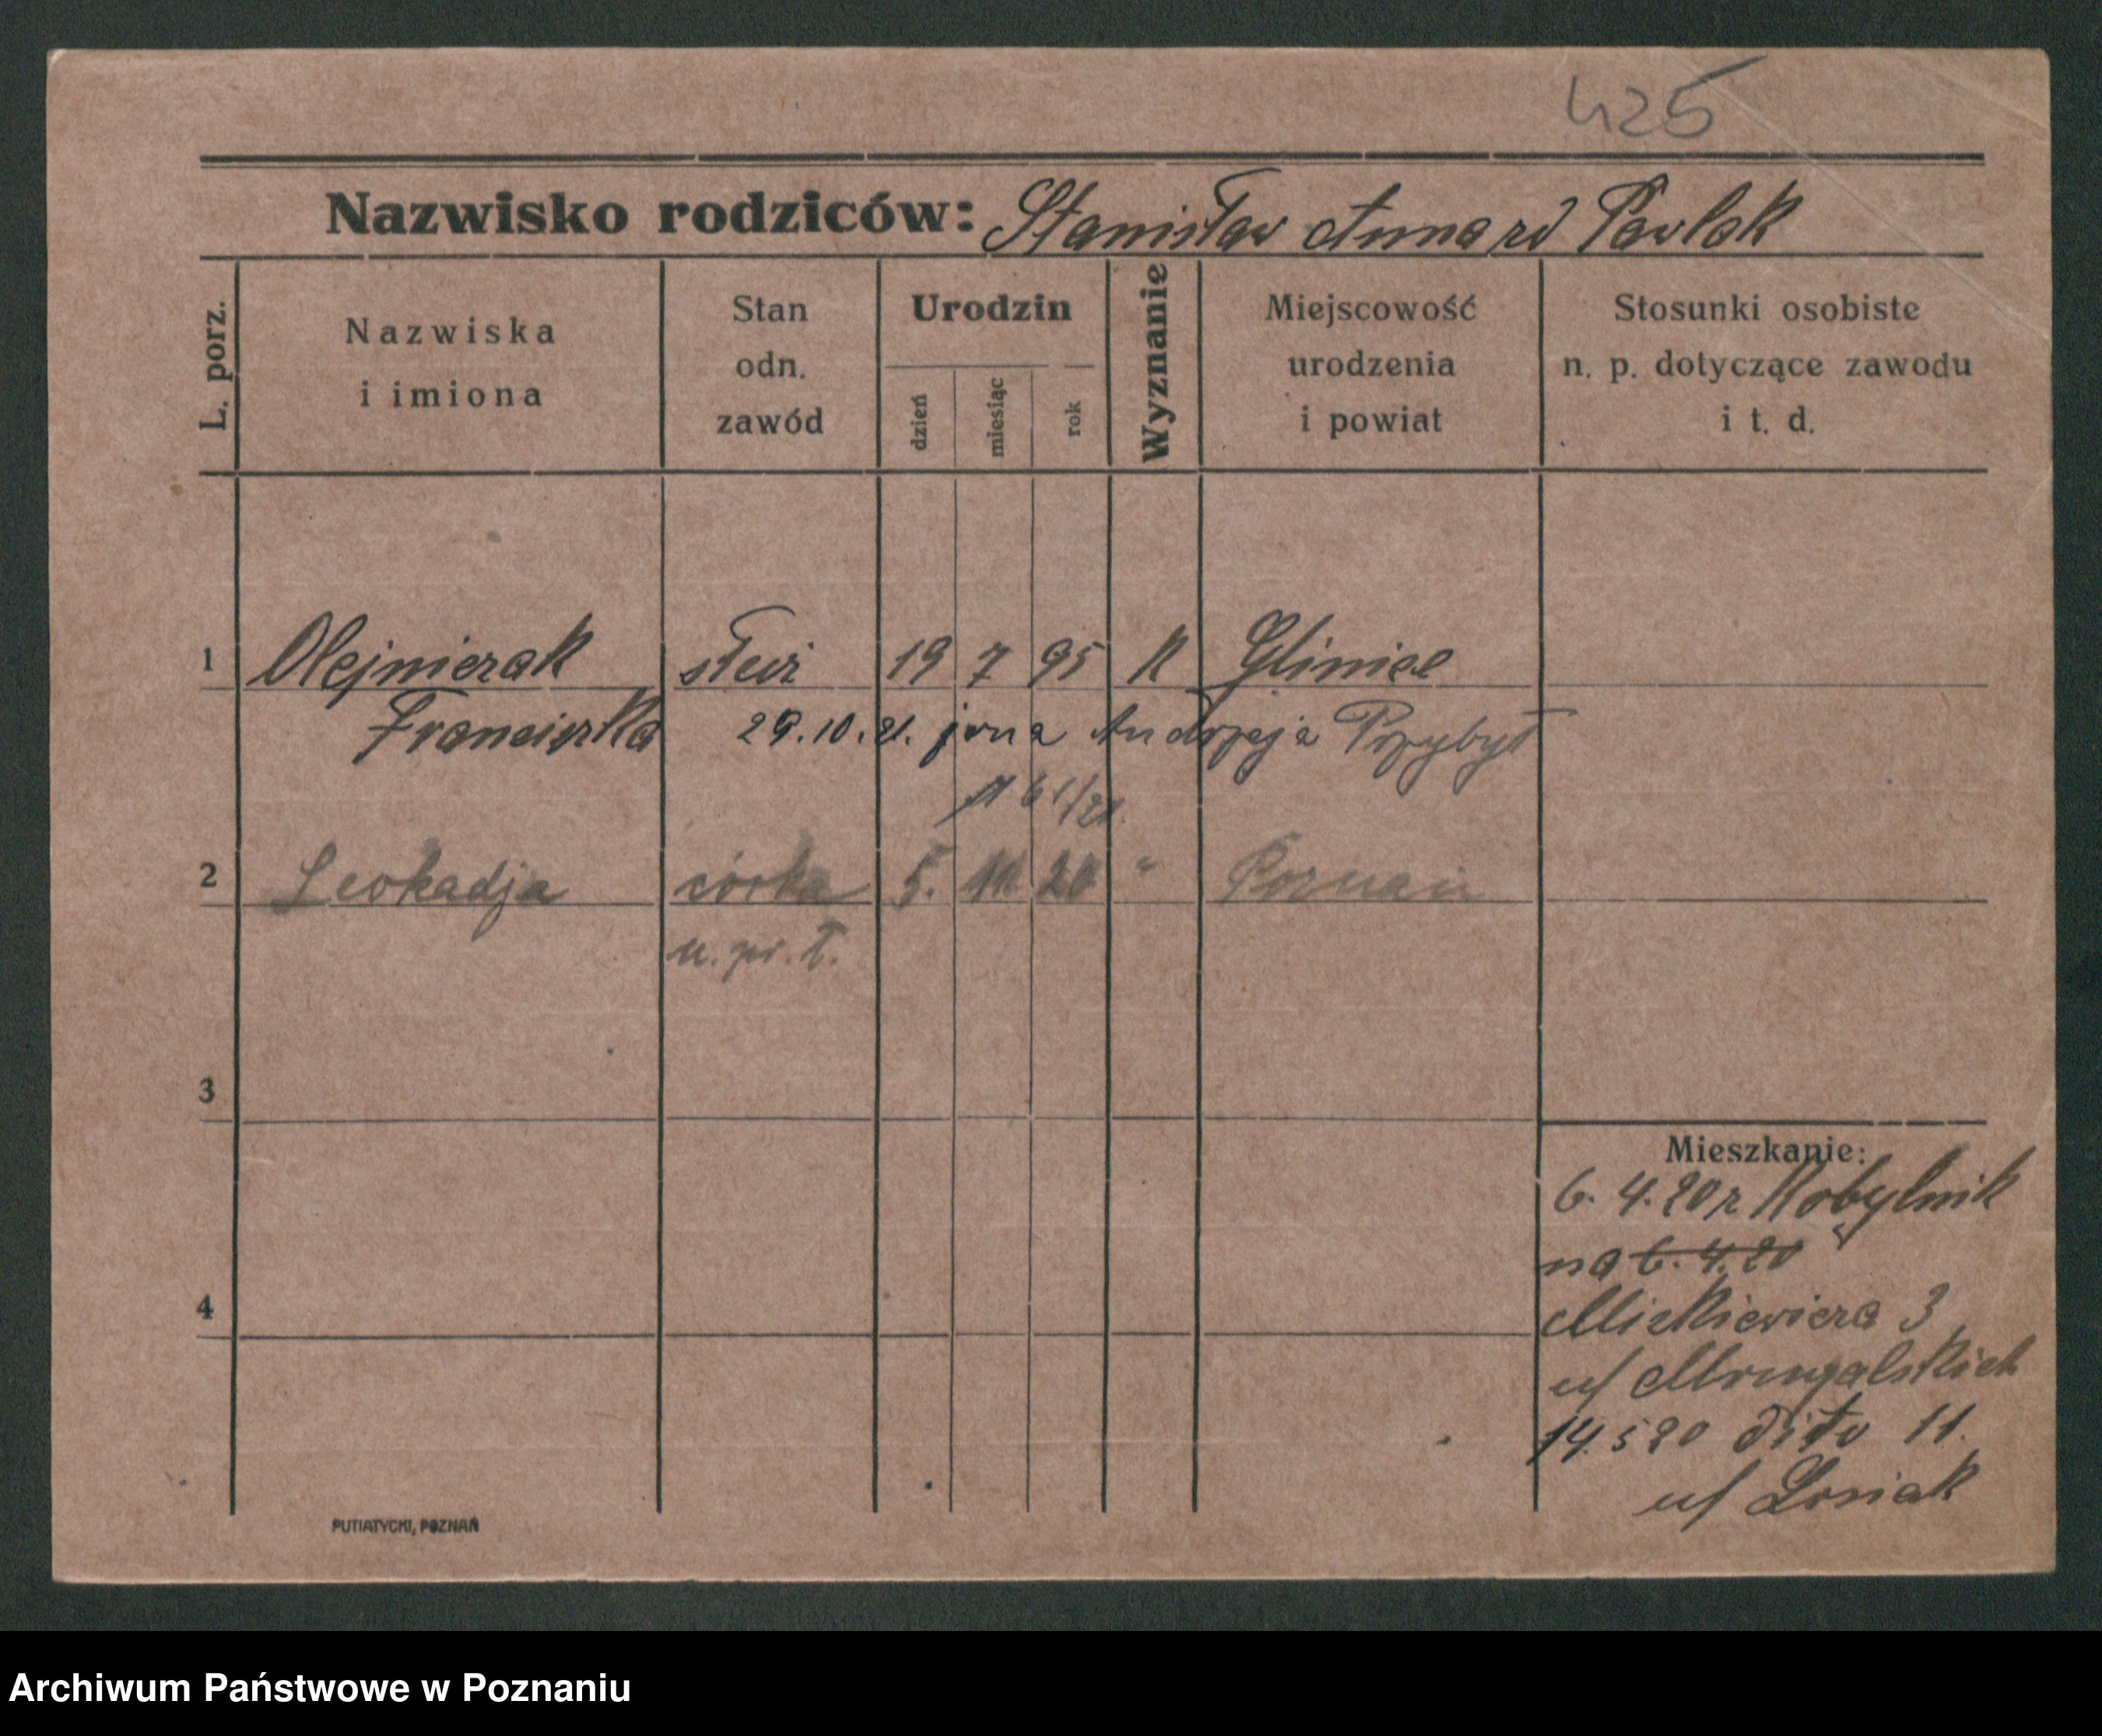 425
Nazwisko rodziców: Stanisław Anna rd Pawlak
L. porz.
Nazwiska i imiona
Stan odn. zawód
Urodzin
dzień
miesiąc
rok
Wyznanie
Miejscowość urodzenia i powiat
Stosunki osobiste n. p. dotyczące zawodu i t. d.
1 Olejniczak służ 19 7 95 K
Franciszka 29.10.21. żona Andrzeja Przybył
2 Leokadja córka 5. 20 " Poznań
3
4
Mieszkanie:
6. 4. 20 r Kobylnik
na 6. 4. 20
Mickiewicza 3
14. 5 20 dito 11.
PUTIATYCKI, POZNAŃ
Archiwum Państwowe w Poznaniu